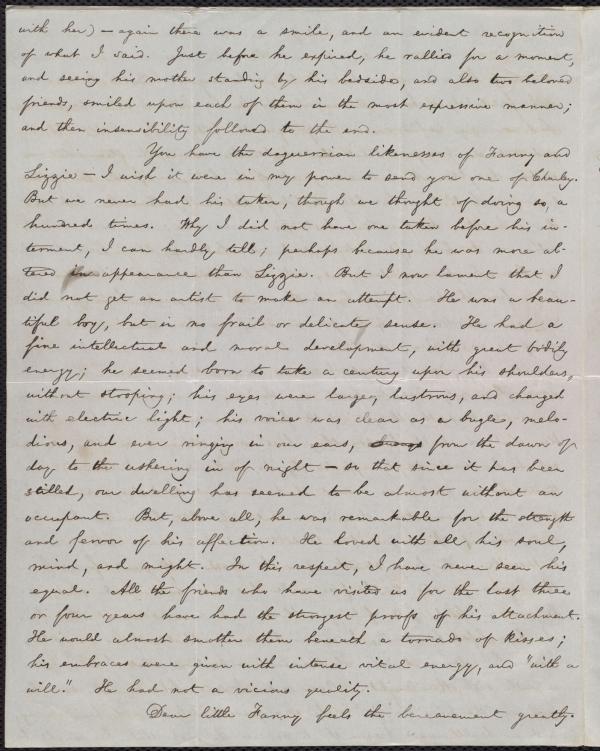 with her) — again there was a smile, and an evident recognition
of what I said. Just before he expired, he rallied for a moment,
and seeing his mother standing by his bedside, and also two beloved
friends, smiled upon each of them in the most expressive manner;
and then insensibility followed to the end.
You have the daguerrian likenesses of Fanny and
Lizzie — I wish it were in my power to send you one of Charley.
But we never had his taken, though we thought of doing so, a
hundred times. Why I did not have one taken before his in-
terment, I can hardly tell; perhaps because he was more al-
tered in appearance than Lizzie. But I now lament that I
did not get an artist to make an attempt. He was a beau-
tiful boy, but in no frail or delicate sense. He had a
fine intellectual and moral development, with great bodily
energy; he seemed born to take a century upon his shoulders,
without stooping; his eyes were large, lustrous, and charged
with electric light; his voice was clear as a bugle, melo-
dious, and ever ringing in our ears, from the dawn of
day to the ushering in of night — so that since it has been
stilled, our dwelling has seemed to be almost without an
occupant. But, above all, he was remarkable for the strength
and fervor of his affection. He loved with all his soul,
mind, and might. In this respect, I have never seen his
equal. All the friends who have visited us for the last three
or four years have had the strongest proofs of his attachment.
He would almost smother them beneath a tornado of kisses;
his embraces were given with intense vital energy, and "with a
will." He had not a vicious quality.
Dear little Fanny feels the bereavement greatly.